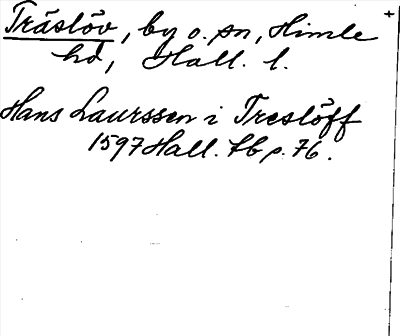 Träslöv, by o. sn, Himle
hd, Hall. l.
Hans Laurssen i Treslöff
1597 Hall. tb p. 76.